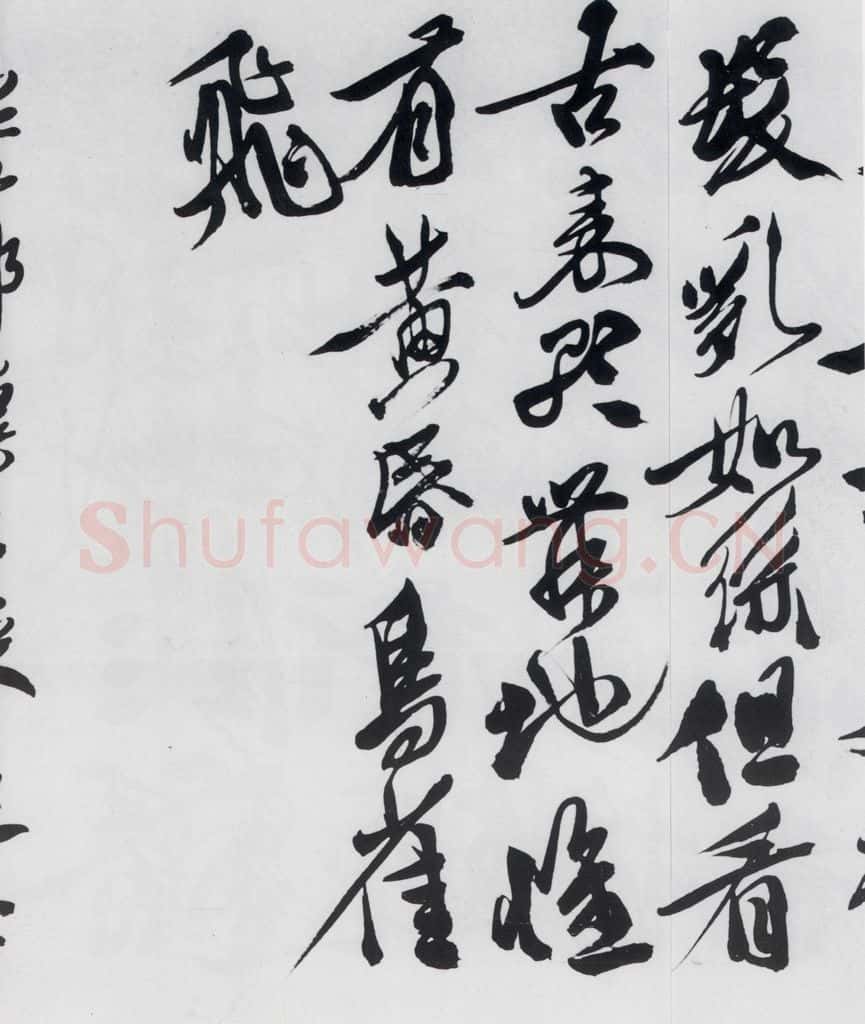 髮亂如絲但看
古來歌舞地惟
有黃昏鳥雀
飛
Shufawang.CN